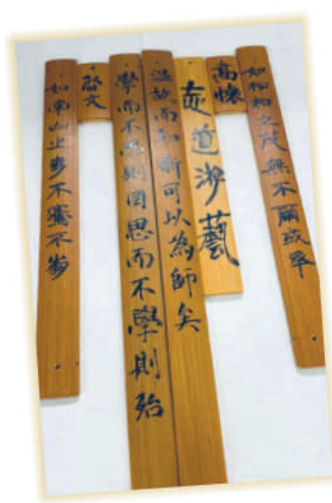 如松柏之茂無不爾或承
高懷
志道游藝
溫故而知新可以為師矣
學而不思則罔思而不學則殆
啓文
如南山之壽不騫不崩